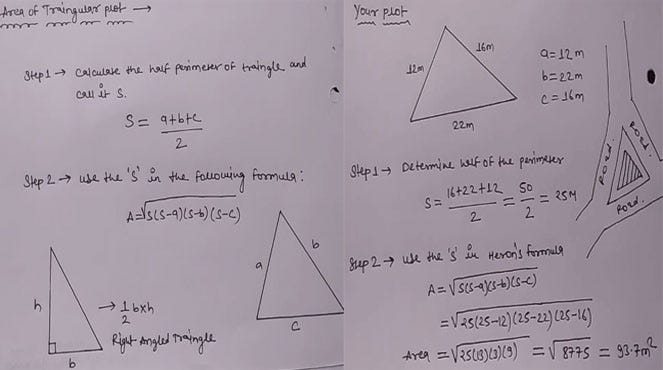 Area of Traingular plot →
Step 1 → Calculate the half perimeter of traingle and
call it S.
S = a+b+c / 2
Step 2 → use the 'S' in the following formula:
A=√S(S-a)(S-b)(S-C)
h
b
→ 1/2 b×h
Right Angled Traingle
a
b
c
Your plot
12m
16m
22m
a = 12m
b = 22m
c = 16m
ROad.
ROad.
ROad.
Step 1 → Determine half of the perimeter
S = 16+22+12 / 2 = 50 / 2 = 25M
Step 2 → Use the 's' in Heron's formula
A = √S(S-a)(S-b)(S-C)
= √25(25-12)(25-22)(25-16)
Area = √25(13)(3)(9) = √8775 = 93.7m²